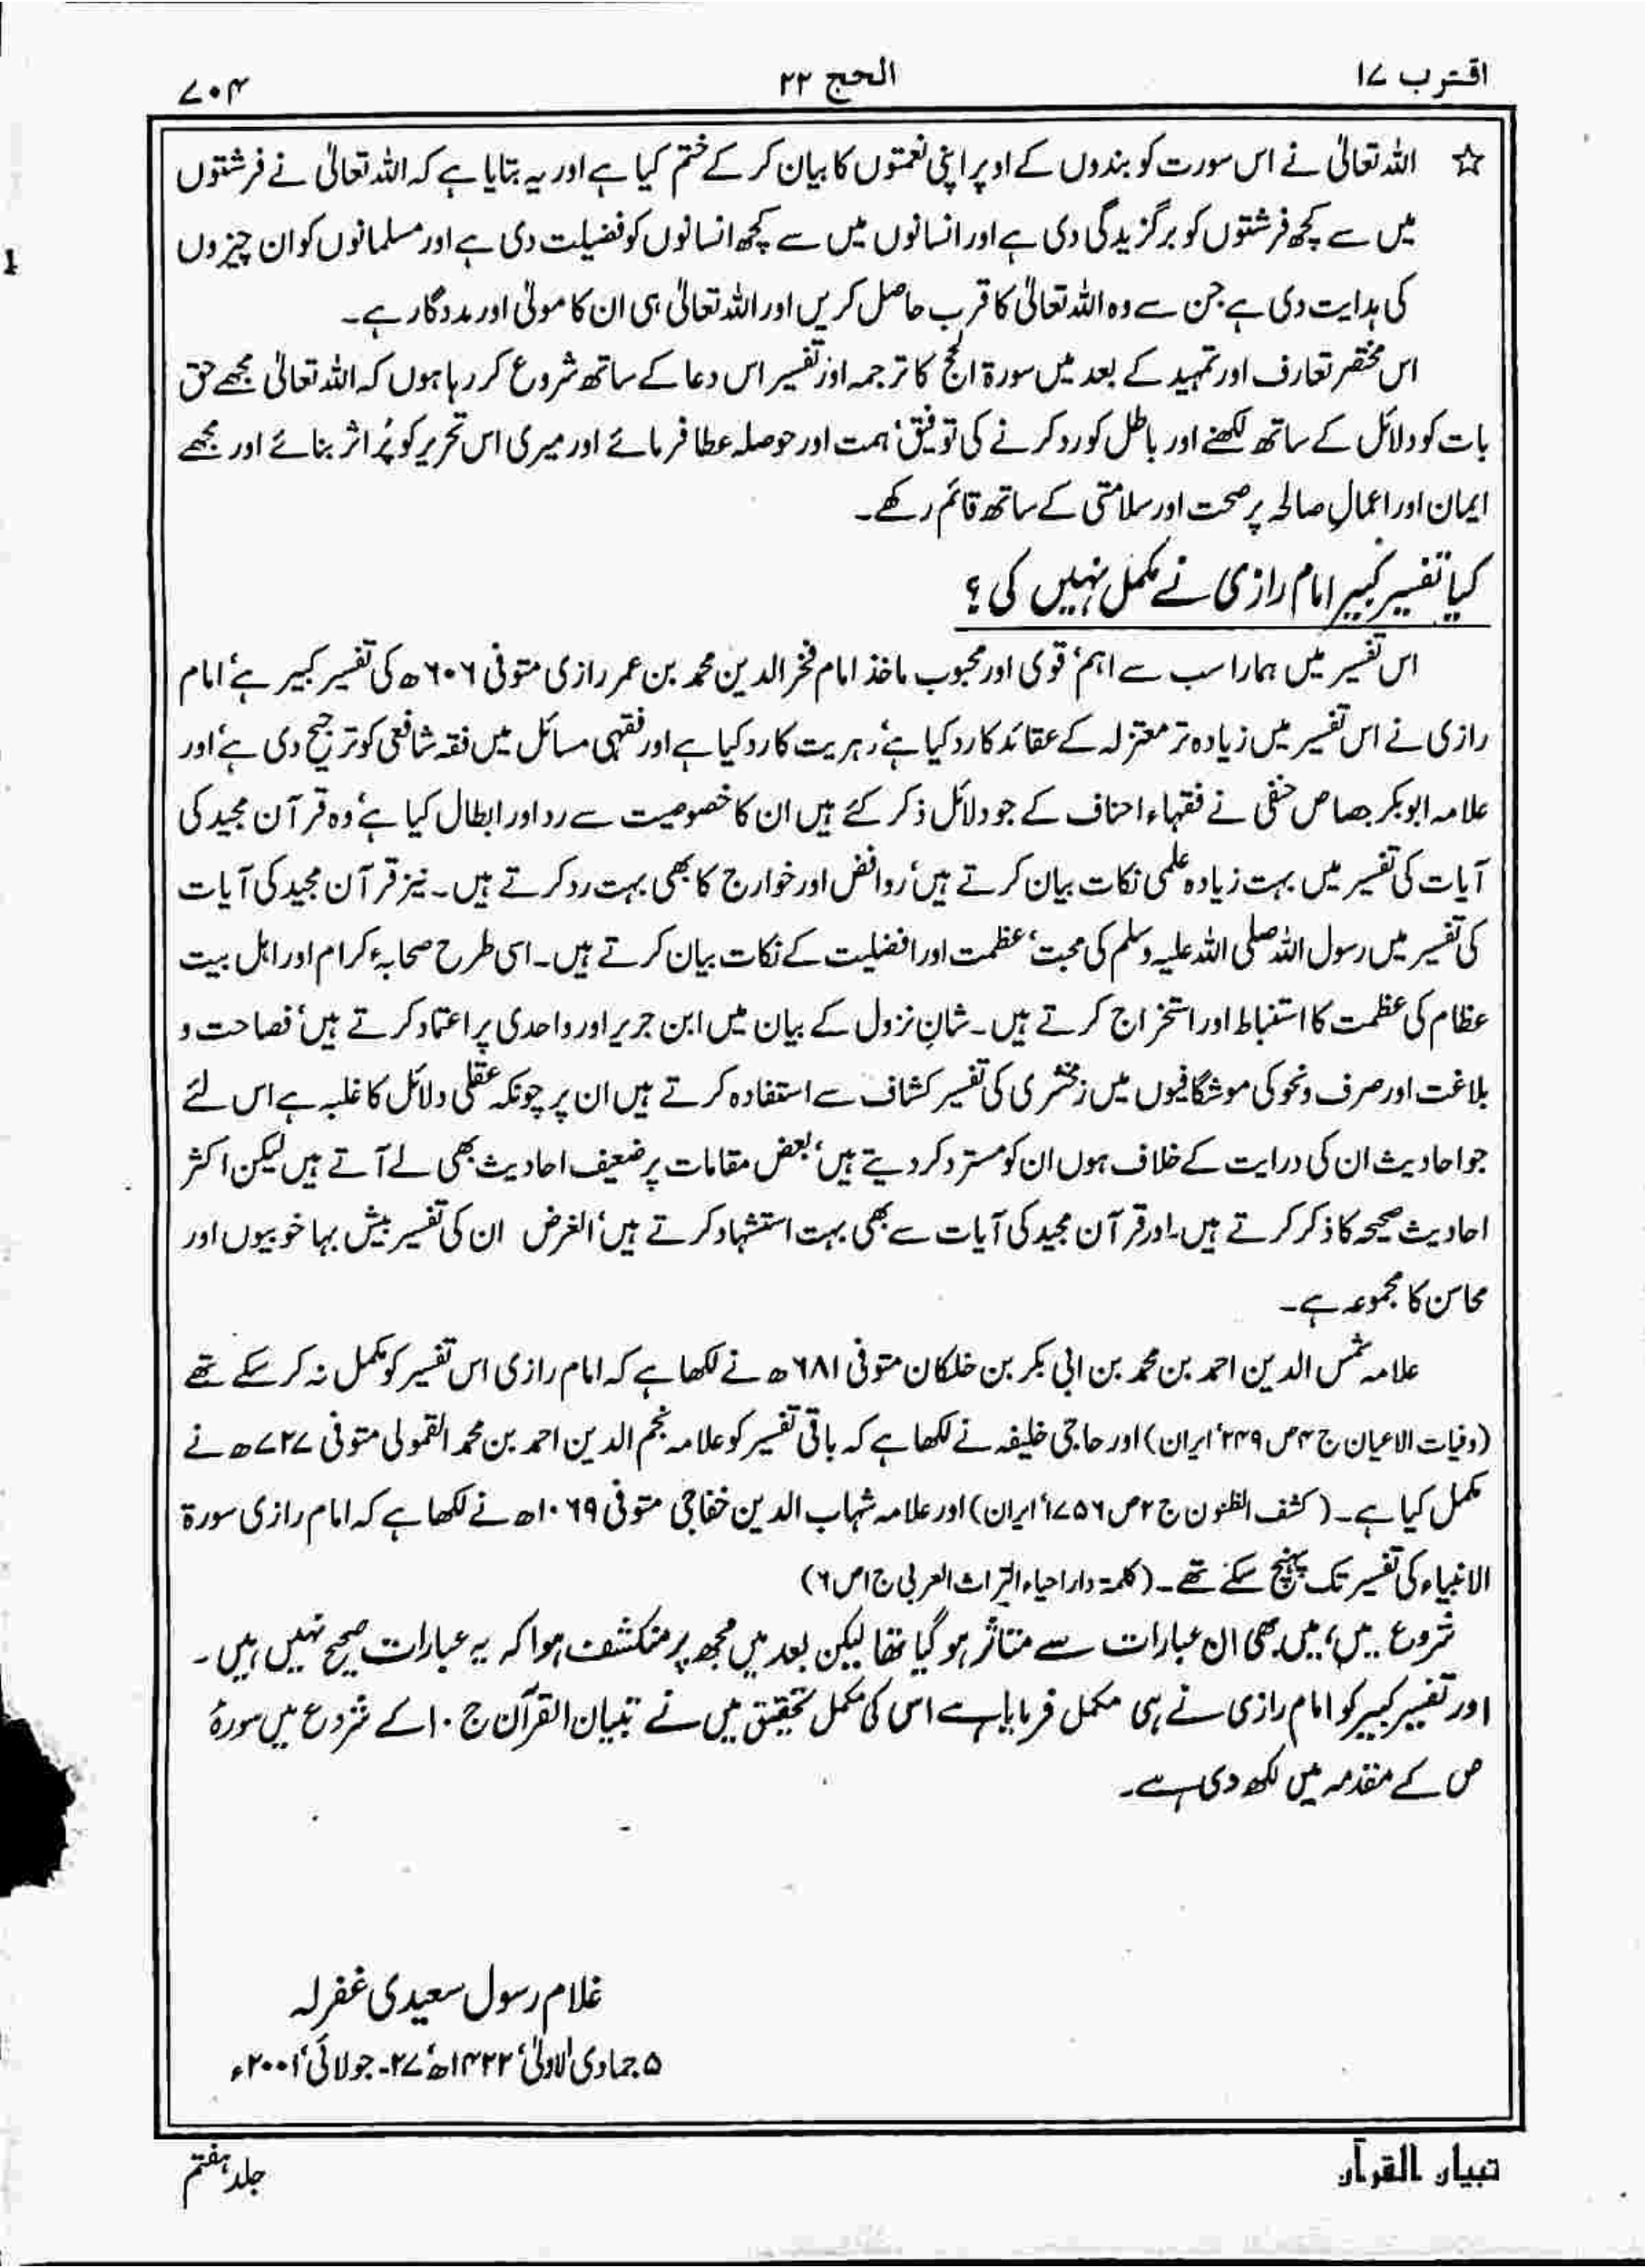 اقترب ۱۷
الحج ۲۲
۷۰۴
☆ اللہ تعالیٰ نے اس سورت کو بندوں کے اوپر اپنی نعمتوں کا بیان کر کے ختم کیا ہے اور یہ بتایا ہے کہ اللہ تعالیٰ نے فرشتوں
میں سے کچھ فرشتوں کو برگزیدگی دی ہے اور انسانوں میں سے کچھ انسانوں کو فضیلت دی ہے اور مسلمانوں کو ان چیزوں
کی ہدایت دی ہے جن سے وہ اللہ تعالیٰ کا قرب حاصل کریں اور اللہ تعالیٰ ہی ان کا مولیٰ اور مددگار ہے۔
اس مختصر تعارف اور تمہید کے بعد میں سورۃ الحج کا ترجمہ اور تفسیر اس دعا کے ساتھ شروع کر رہا ہوں کہ اللہ تعالیٰ مجھے حق
بات کو دلائل کے ساتھ لکھنے اور باطل کو رد کرنے کی توفیق، ہمت اور حوصلہ عطا فرمائے اور میری اس تحریر کو پُر اثر بنائے اور مجھے
ایمان اور اعمالِ صالحہ پر صحت اور سلامتی کے ساتھ قائم رکھے۔
کیا تفسیر کبیر امام رازی نے مکمل نہیں کی؟
اس تفسیر میں ہمارا سب سے اہم، قوی اور محبوب ماخذ امام فخر الدین محمد بن عمر رازی متوفی ۶۰۶ ھ کی تفسیر کبیر ہے، امام
رازی نے اس تفسیر میں زیادہ تر معتزلہ کے عقائد کا رد کیا ہے، دہریت کا رد کیا ہے اور فقہی مسائل میں فقہ شافعی کو ترجیح دی ہے، اور
علامہ ابوبکر جصاص حنفی نے فقہاء احناف کے جو دلائل ذکر کئے ہیں ان کا خصوصیت سے رد اور ابطال کیا ہے، وہ قرآن مجید کی
آیات کی تفسیر میں بہت زیادہ علمی نکات بیان کرتے ہیں، روافض اور خوارج کا بھی بہت رد کرتے ہیں۔ نیز قرآن مجید کی آیات
کی تفسیر میں رسول اللہ صلی اللہ علیہ وسلم کی محبت، عظمت اور افضلیت کے نکات بیان کرتے ہیں۔ اسی طرح صحابہء کرام اور اہل بیت
عظام کی عظمت کا استنباط اور استخراج کرتے ہیں۔ شانِ نزول کے بیان میں ابن جریر اور واحدی پر اعتماد کرتے ہیں، فصاحت و
بلاغت اور صرف و نحو کی موشگافیوں میں زمخشری کی تفسیر کشاف سے استفادہ کرتے ہیں ان پر چونکہ عقلی دلائل کا غلبہ ہے اس لئے
جو احادیث ان کی درایت کے خلاف ہوں ان کو مسترد کر دیتے ہیں، بعض مقامات پر ضعیف احادیث بھی لے آتے ہیں لیکن اکثر
احادیث صحیحہ کا ذکر کرتے ہیں۔ اور قرآن مجید کی آیات سے بھی بہت استشہاد کرتے ہیں، الغرض ان کی تفسیر بیش بہا خوبیوں اور
محاسن کا مجموعہ ہے۔
علامہ شمس الدین احمد بن محمد بن ابی بکر بن خلکان متوفی ۶۸۱ ھ نے لکھا ہے کہ امام رازی اس تفسیر کو مکمل نہ کر سکے تھے
(وفیات الاعیان ج ۴ ص ۲۴۹، ایران) اور حاجی خلیفہ نے لکھا ہے کہ باقی تفسیر کو علامہ نجم الدین احمد بن محمد القمولی متوفی ۷۲۷ ھ نے
مکمل کیا ہے۔ (کشف الظنون ج ۲ ص ۱۷۵۶، ایران) اور علامہ شہاب الدین خفاجی متوفی ۱۰۶۹ ھ نے لکھا ہے کہ امام رازی سورۃ
الانبیاء کی تفسیر تک پہنچ سکے تھے۔ (کلمۃ دار احیاء التراث العربی ج ۱ ص ۶)
شروع میں، میں بھی ان عبارات سے متاثر ہو گیا تھا لیکن بعد میں مجھ پر منکشف ہوا کہ یہ عبارات صحیح نہیں ہیں۔
اور تفسیر کبیر کو امام رازی نے ہی مکمل فرمایا ہے اس کی مکمل تحقیق میں نے تبیان القرآن ج ۱۰ کے شروع میں سورۂ
ص کے مقدمہ میں لکھ دی ہے۔
غلام رسول سعیدی غفرلہ
۵ جمادی الاولیٰ، ۱۴۲۲ھ، ۲۷۔ جولائی، ۲۰۰۱ء
تبیان القرآن
جلد ہفتم